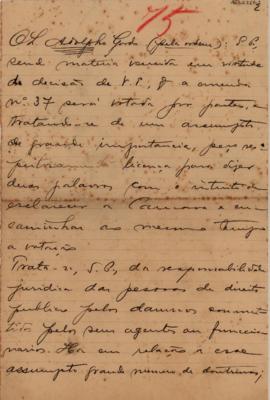 75
2
O Sr. Adolpho Gordo (pela ordem): S. P.,
sendo materia vencida em virtude
da decisão de V. E., q a emenda
nº 37 será votada por partes, e
tratando-se de um assumpto
de grande importancia, peço res-
peitosamente licença para dizer
duas palavras com o intuito de
esclarecer a Camara e en-
caminhar ao mesmo tempo
a votação
Trata-se, S. P., da responsabilidade
juridica das pessoas de direito
publico pelos damnos commet-
tidos pelos seus agentes ou funccio-
narios. Ha em relação a esse
assumpto grande numero de doutrinas;